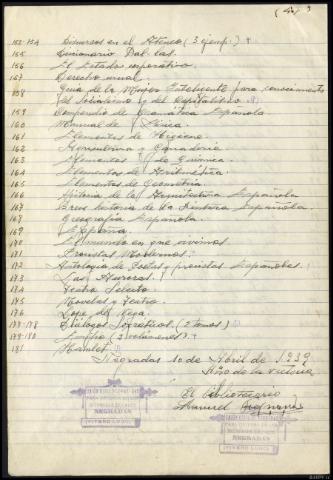 (4)
152-154 Discursos en el Ateneo (3 ejemp.)
155 Diccionario Dal las.
156 El Estado corporativo
157 Derecho usual.
158 Guia de la Mujer Inteligente para conocimiento
del Socialismo y del Capitalismo
159 Compendio de Gramática Española
160 Manual de Física.
161 Elementos de Higiene.
162 Agricultura y Ganadería.
163 Elementos de Química.
164 Elementos de Aritmética.
165 Elementos de Geometría.
166 Historia de la Literatura Española
167 Breve historia de la Literatura Española.
168 Geografía Española.
169 España.
170 El Mundo en que vivimos.
171 Prosistas Modernos.
172 Antología de Poetas y prosistas Españoles.
173 Las Auroras.
174 Teatro Selecto.
175 Novelas y Teatro.
176 Lope de Vega.
177-178 Diálogos Socráticos. (2 tomos)
179-180 (2 volúmenes)
181 Hamlet
Negradas 10 de Abril de 1.939
Año de la Victoria
El bibliotecario
Manuel
NEGRADAS
VIVERO (LUGO)
NEGRADAS
VIVERO (LUGO)